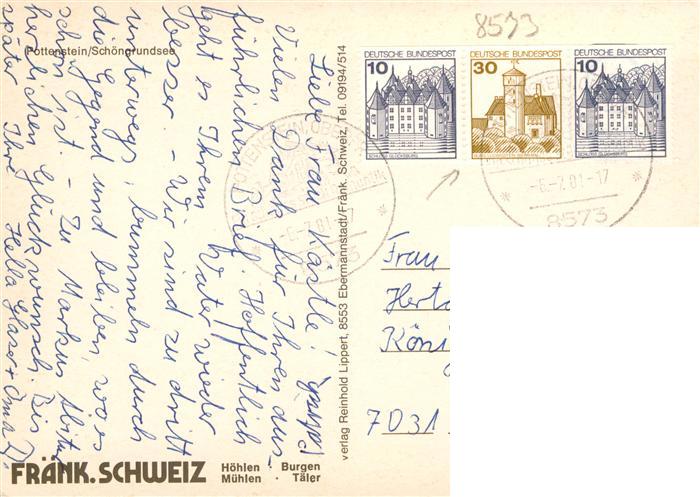 8573
(Pottenstein/Schöngrundsee
DEUTSCHE BUNDESPOST
10
SCHLOSS GLÜCKSBURG
DEUTSCHE BUNDESPOST
30
DEUTSCHE BUNDESPOST
10
SCHLOSS GLÜCKSBURG
-6-7.81-17
8573
-6-7.81-17
Liebe Frau Kästle!
Vielen Dank für Ihren aus-
führlichen Brief. Hoffentlich
geht es Ihrem Vater wieder
besser. - Wir sind zu dritt
unterwegs, bummeln durch
die Gegend und bleiben, wo es
schön ist. - Zu Markus Abitur
herzlichen Glückwunsch. Bis
später Ihre Hella Glaser +
verlag Reinhold Lippert, 8553 Ebermannstadt/Fränk. Schweiz, Tel. 09194/514
Frau
Herta
Köni
7031
FRÄNK. SCHWEIZ
Höhlen · Burgen
Mühlen · Täler